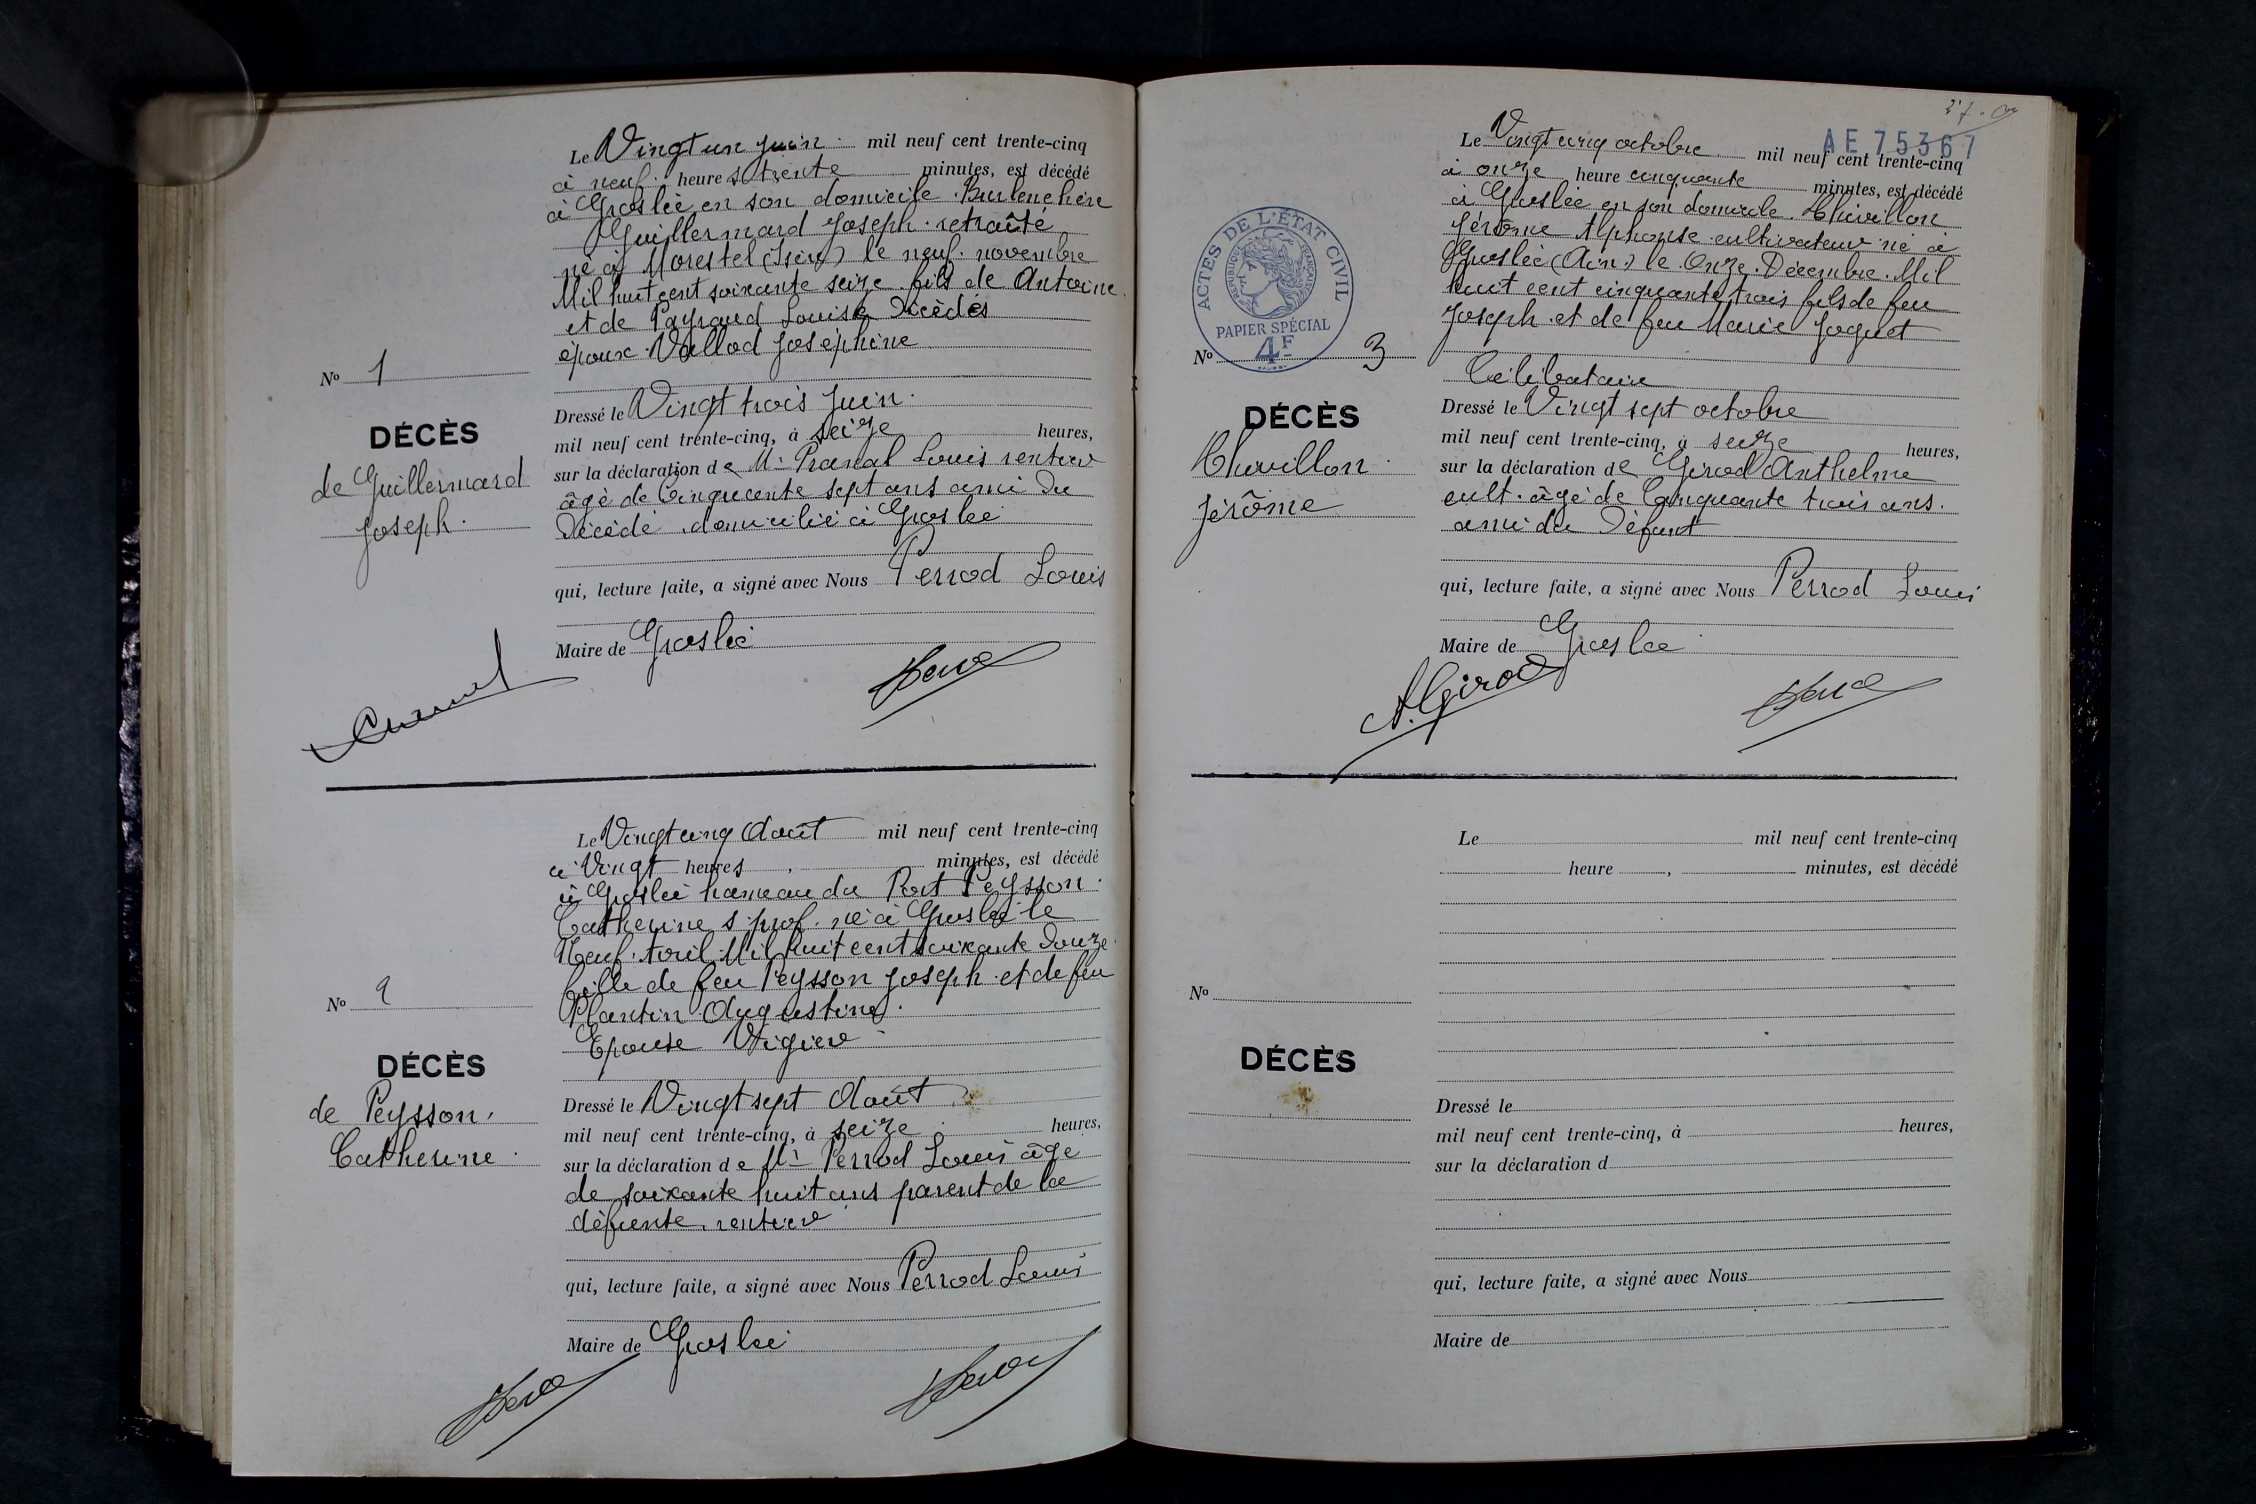 Le Vingt un juin mil neuf cent trente-cinq
à neuf heures trente minutes, est décédé
à Groslée en son domicile
Guillermard Joseph retraité
né à Morestel (Isère) le neuf novembre
Mil huit cent soixante seize fils de Antoine
et de Payraud Louise Décédés
époux Vallod Joséphine
No 1
DÉCÈS
de Guillermard
Joseph.
Dressé le Vingt trois juin.
mil neuf cent trente-cinq, à seize heures,
sur la déclaration de Mr Louis rentier
âgé de Cinquante sept ans ami du
Décédé domicilié à Groslée
qui, lecture faite, a signé avec Nous Perrod Louis
Maire de Groslée
Le Vingt cinq Août mil neuf cent trente-cinq
à Vingt heures, minutes, est décédé
à Groslée hameau du Port Peysson
Catherine s. prof. né à Groslée le
Neuf Avril Mil huit cent soixante douze
fille de feu Peysson Joseph et de feu
Plantin Augustine.
Epouse Vigier
No 2
DÉCÈS
de Peysson,
Catherine.
Dressé le Vingt sept Août
mil neuf cent trente-cinq, à seize heures,
sur la déclaration de Mr Perrod Louis âgé
de soixante huit ans parent de la
défunte, rentier
qui, lecture faite, a signé avec Nous Perrod Louis
Maire de Groslée
AE 75367
Le Vingt cinq octobre mil neuf cent trente-cinq
à onze heure cinquante minutes, est décédé
à Groslée en son domicile Thévillon
Jérôme Alphonse cultivateur né à
Groslée (Ain) le Onze Décembre Mil
huit cent cinquante trois fils de feu
Joseph et de feu Marie Joguet
Célibataire
ACTES DE L'ÉTAT CIVIL
RÉPUBLIQUE FRANÇAISE
PAPIER SPÉCIAL
4F
No 3
DÉCÈS
Thévillon
Jérôme
Dressé le Vingt sept octobre
mil neuf cent trente-cinq, à seize heures,
sur la déclaration de Girod Anthelme
cult. âgé de Cinquante trois ans.
ami du Défunt
qui, lecture faite, a signé avec Nous Perrod Louis
Maire de Groslée
A. Girod
Le mil neuf cent trente-cinq
heure , minutes, est décédé
No
DÉCÈS
Dressé le
mil neuf cent trente-cinq, à heures,
sur la déclaration d
qui, lecture faite, a signé avec Nous
Maire de